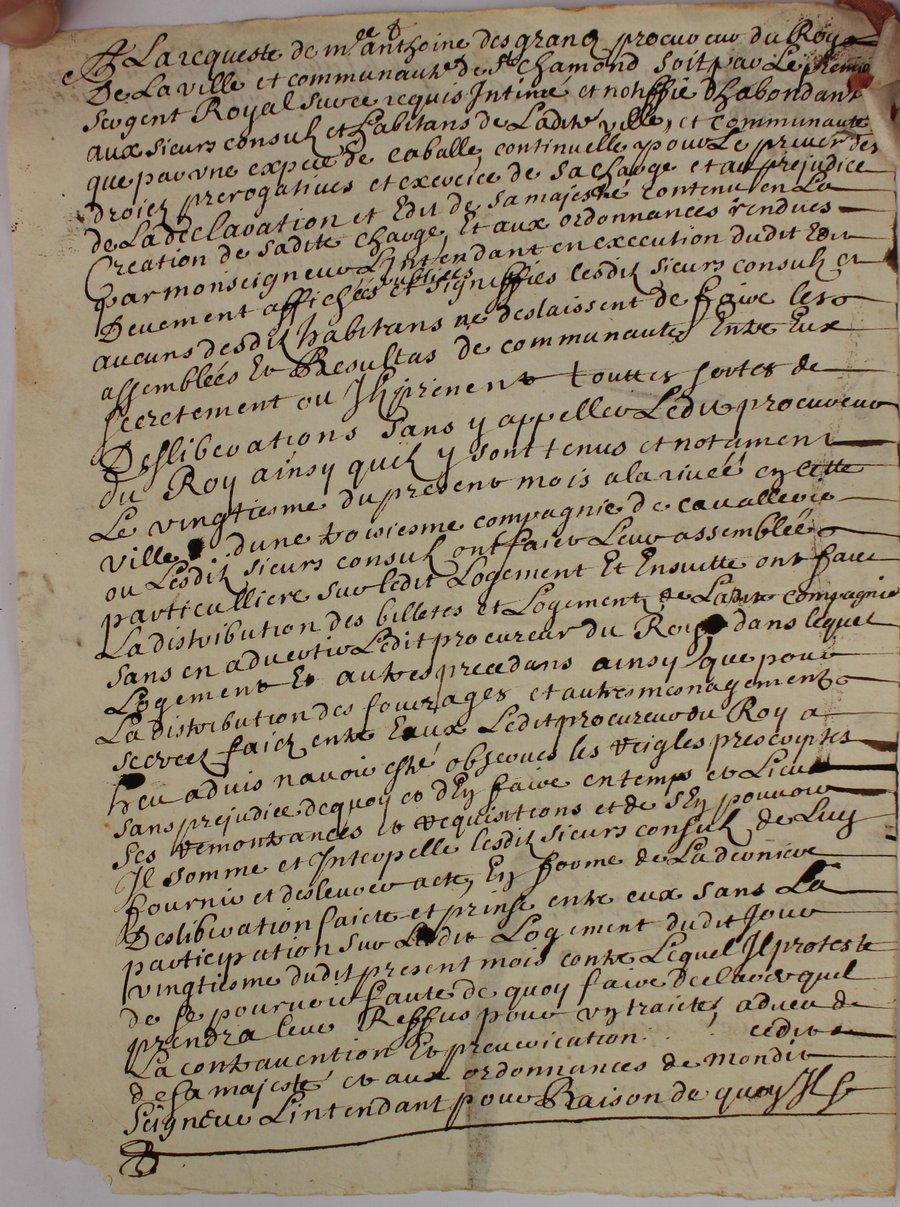 A La requeste de mre anthoine des granz procureur du Roy
De La ville et communauté de St chamond soit par Le premier
Sergent Royal sur ce requis Intimé et notiffié d'habondant
aux sieurs consulz et habitans de Ladite ville, et communauté
que par une expece de caballe continuelle pour Le priver des
droictz prerogatives et exercice de sa charge et au prejudice
de La declaration et Edit de sa majesté contenu en La
Creation de sadite charge Et aux ordonnances rendues
par monseigneur L'Intendant en execution dudit Edit
Deuement affichées publiées et signiffiés lesditz sieurs consulz et
aucuns desditz habitans ne deslaissent de faire les
assemblées Et Resultas de communauté Entre Eux
secretement ou Ilz prenent touttes sortes de
Desliberations sans y appeller Ledit procureur
du Roy ainsy quilz y sont tenus et notament
Le vingtiesme du present mois a la rivéé en cette
ville dune troisiesme compagnie de cavallerie
ou Lesditz sieurs consulz ont faict Leur assemblée
particulliere sur ledit Logement Et Ensuitte ont faict
La distribution des billetes et Logement de Ladite compagnie
sans en advertir Ledit procureur du Roy dans lequel
Logement Et autres precedans ainsy que pour
La distribution des fourrages et autres mesnagements
secretz faictz entre Eaux Ledit procureur du Roy a
heu advis navoir esté observés les reigles prescriptes
sans prejudice dequoy et d'En faire en temps et Lieu
ses remontrances et requisitions et de s'En pourvoir
Il somme et Interpelle lesditz sieurs consulz de Luy
fournir et deslivrer acte, En forme de La derniere
Desliberation faicte et prinse entre eux sans La
participation sur Ledit Logement dudit Jour
vingtiesme dudit present mois contre Lequel Il proteste
de se pourvoir faute de quoy faire declare quil
prendra leur Reffus pour un traicté, adveu de
La contravention Et prevarication cedit
de sa majesté et aux ordonnances de mondit
seigneur L'intendant pour Raison de quoy Il se